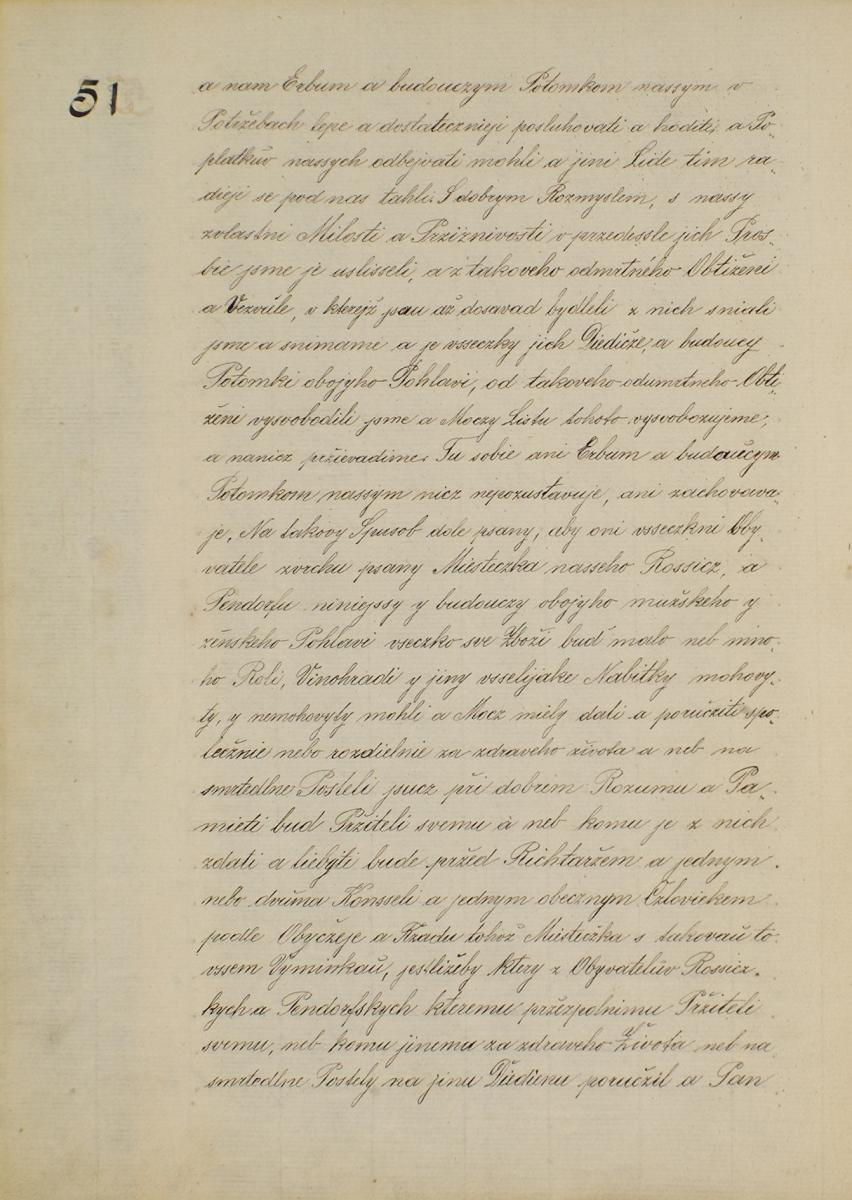 51
a nam Erbum a budouczym Potomkom nassym v
Potržebach lepe a dostateczniеji posluhovati a hoditi, a Po-
platkuv nassych odbejvati mohli a jini Lide tim ra-
dieji se pod nas tahli. S dobrym Rozmyslem, s nassy
zvlastni Milosti a Prziznivosti v przedessle jich Pros-
bie jsme je uslisseli, a z takoveho odmrtného Obtiženi
a Vezvúle, v kterejž jsau až dosavad bydleli z nich sniali
jsme a snimame a je vsseczky jich Diediče, a budoucy
Potomki obojyho Pohlavi, od takoveho odumrtneho Obti-
ženi vysvobodili jsme a Moczy Listu tohoto vysvobozujeme,
a nanicz pržievadime. Tu sobie ani Erbum a budaučym
Potomkom nassym nicz nepozustavuje, ani zachovava-
je, Na takovy Spusob dole psany, aby oni vsseczkni Oby-
vatele zvrchu psany Miesteczka nasseho Rossicz, a
Pendorfu niniejssy y budouczy obojyho mužskeho y
žinskeho Pohlavi vseczko sve Zboži bud malo neb mno-
ho Roli, Vinohradi y jiny vsselijake Nabitky mohovy-
ty, y nemohovyty mohli a Mocz miely dati a poručziti spo-
lecžnie nebo rozdielnie za zdraveho života a neb na
smrtedlne Posteli jsucz při dobrem Rozumu a Pa-
mieti bud Pržiteli svemu à neb komu je z nich
zdati a liebyti bude pržed Richtaržem a jednym
nebo dvúma Konsseli a jednym obecznym Czloviekem
podle Obyčžeje a Rzadu tohož Miestečžka s takovaú to
vssem Vyminkaú, jestližeby ktery z Obyvatelúv Rossicz-
kych a Pendorfskych kteremu pržezpolnimu Pržiteli
svemu, neb komu jinemu za zdraveho Života neb na
smrtedlne Postely na jinu Diedienu poručžil a Pan